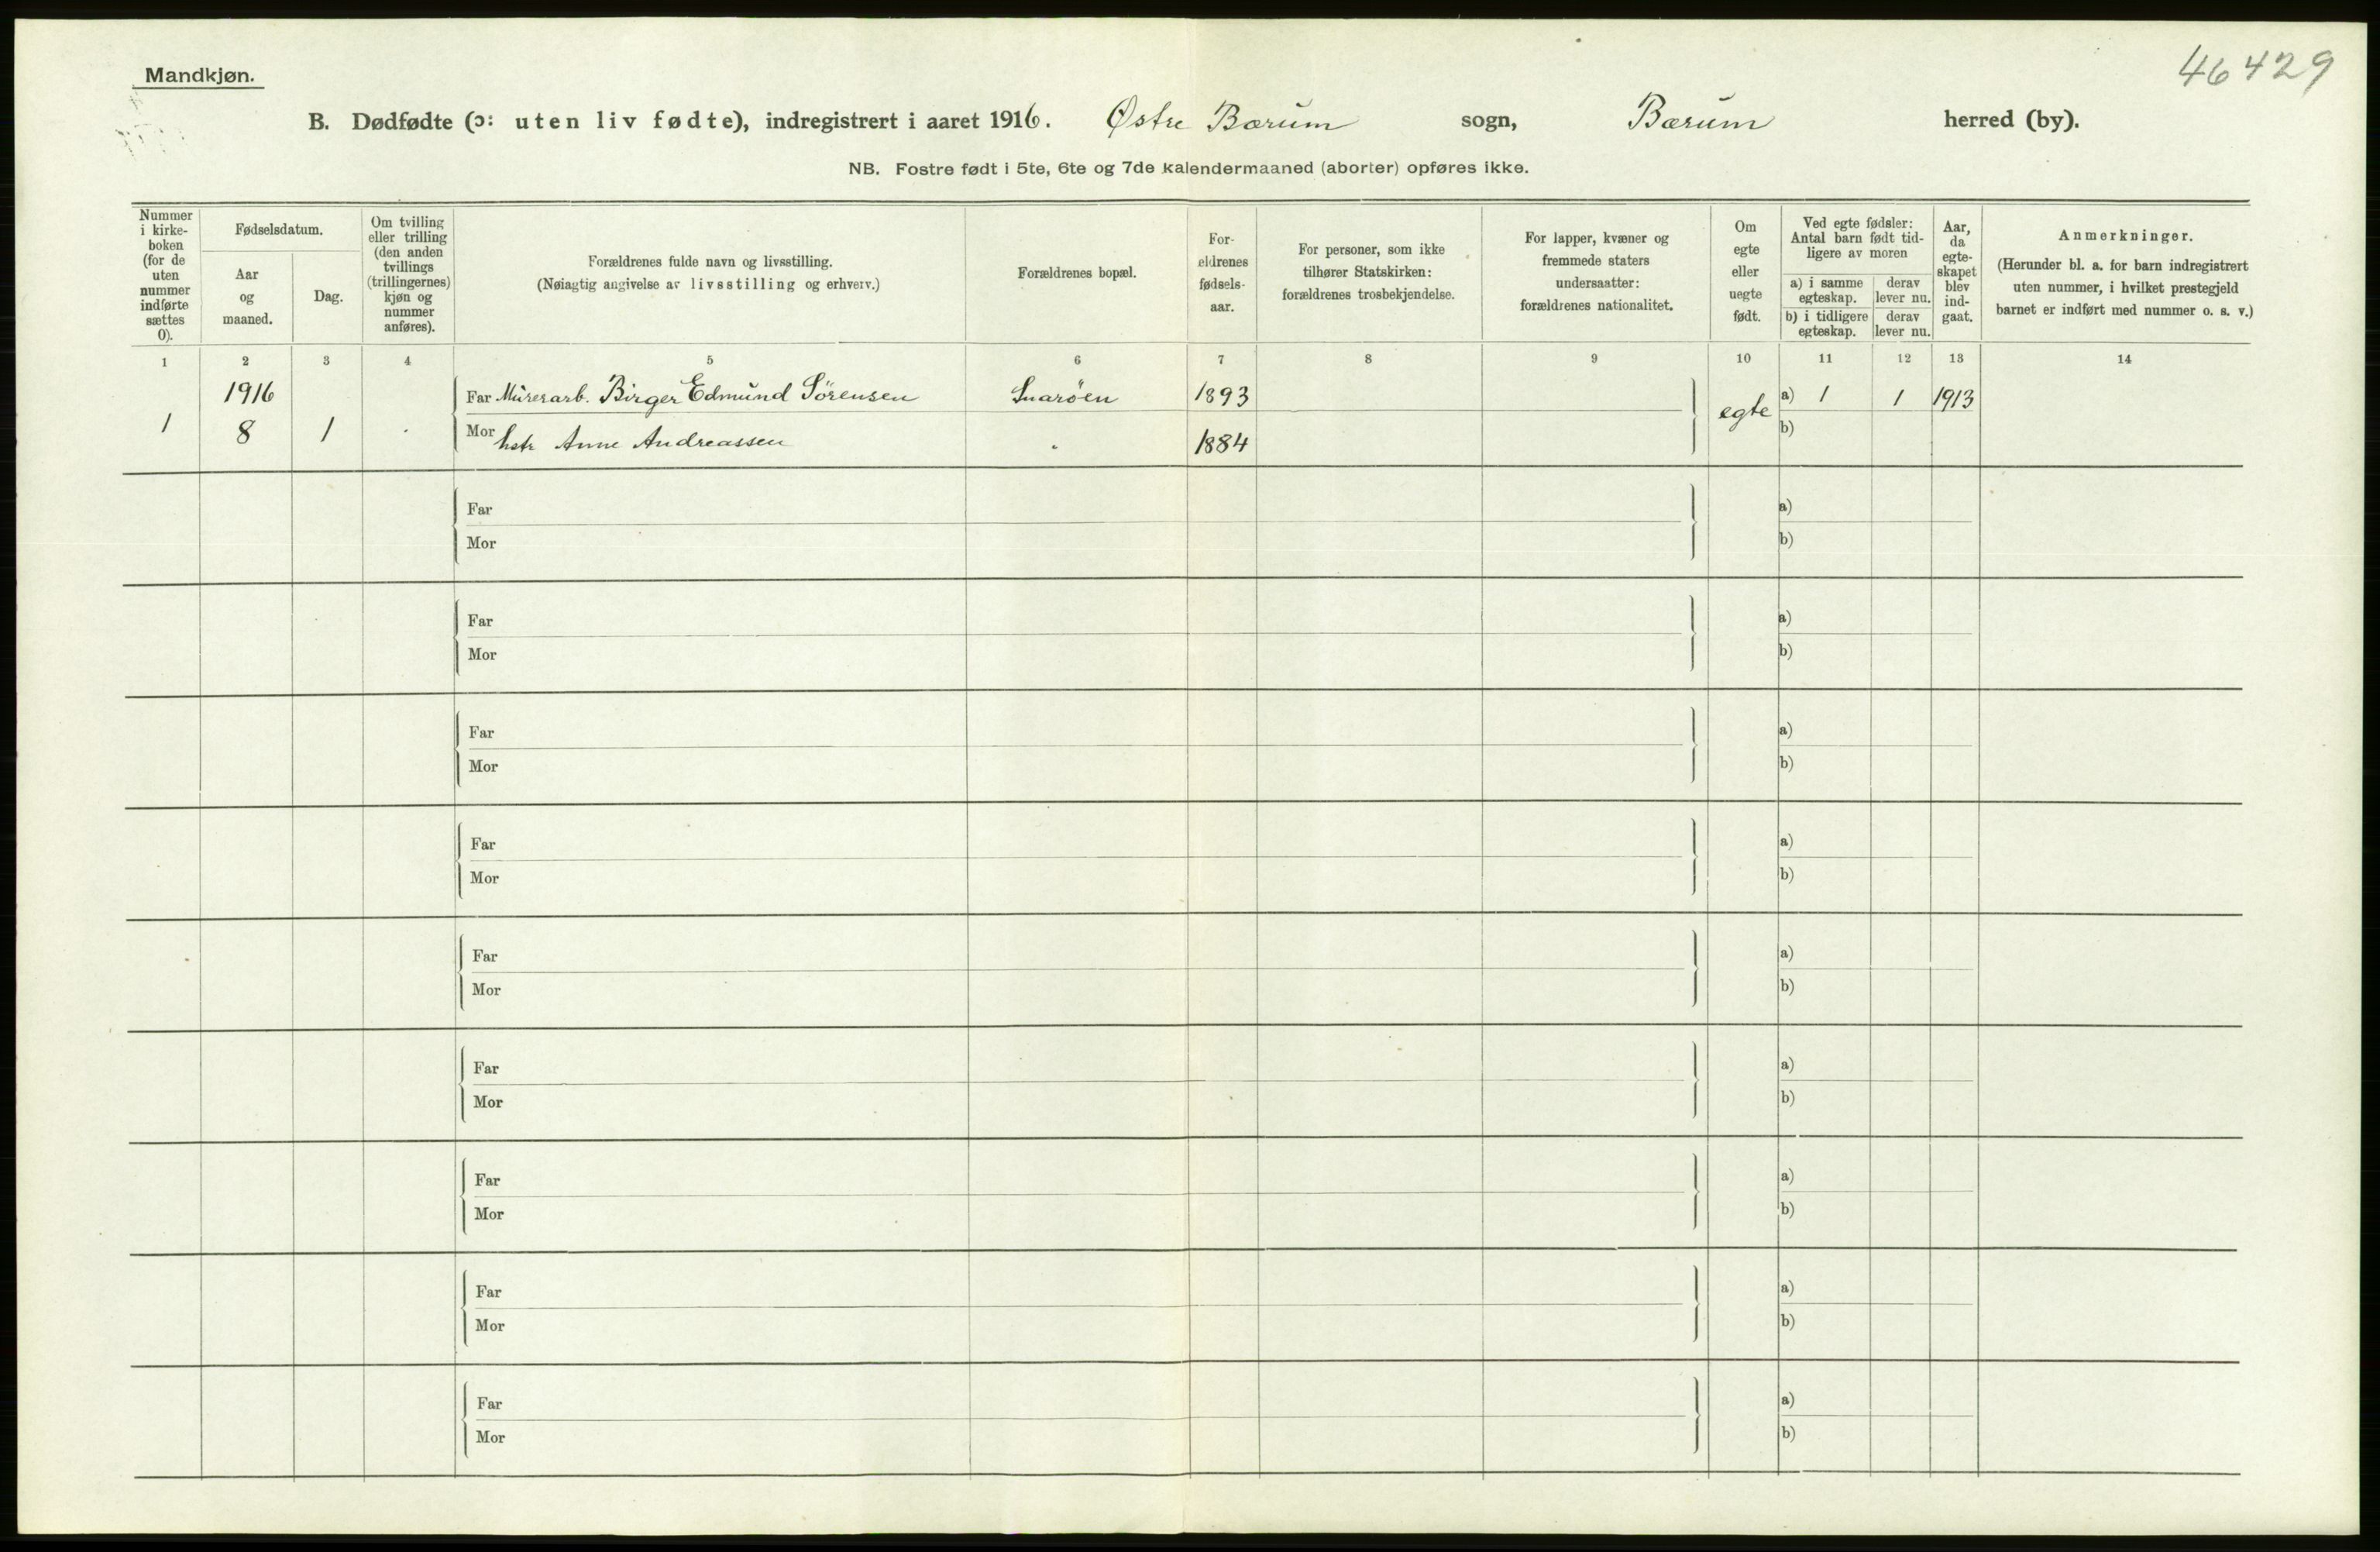 Mandkjøn.
46 429
B. Dødfødte (ɔ: uten liv fødte), indregistrert i aaret 1916. Østre Bærum sogn, Bærum herred (by).
NB. Fostre født i 5te, 6te og 7de kalendermaaned (aborter) opføres ikke.
Nummer
i kirke-
boken
(for de
uten
nummer
indførte
sættes
0).
Fødselsdatum.
Aar
og
maaned.
Dag.
Om tvilling
eller trilling
(den anden
tvillings
(trillingernes)
kjøn og
nummer
anføres).
Forældrenes fulde navn og livsstilling.
(Nøiagtig angivelse av livsstilling og erhverv.)
Forældrenes bopæl.
For-
ældrenes
fødsels-
aar.
For personer, som ikke
tilhører Statskirken:
forældrenes trosbekjendelse.
For lapper, kvæner og
fremmede staters
undersaatter:
forældrenes nationalitet.
Om
egte
eller
uegte
født.
Ved egte fødsler:
Antal barn født tid-
ligere av moren
a) i samme
egteskap.
derav
lever nu.
b) i tidligere
egteskap.
derav
lever nu.
Aar,
da
egte-
skapet
blev
ind-
gaat.
Anmerkninger.
(Herunder bl. a. for barn indregistrert
uten nummer, i hvilket prestegjeld
barnet er indført med nummer o. s. v.)
1 2 3 4 5 6 7 8 9 10 11 12 13 14
1916 Far Murerarb. Birger Edmund Sörensen Snaröen 1893 egte a) 1 1 1913
1 8 1 Mor hstr Anne Andreassen " 1884 b)
Far a)
Mor b)
Far a)
Mor b)
Far a)
Mor b)
Far a)
Mor b)
Far a)
Mor b)
Far a)
Mor b)
Far a)
Mor b)
Far a)
Mor b)
Far a)
Mor b)